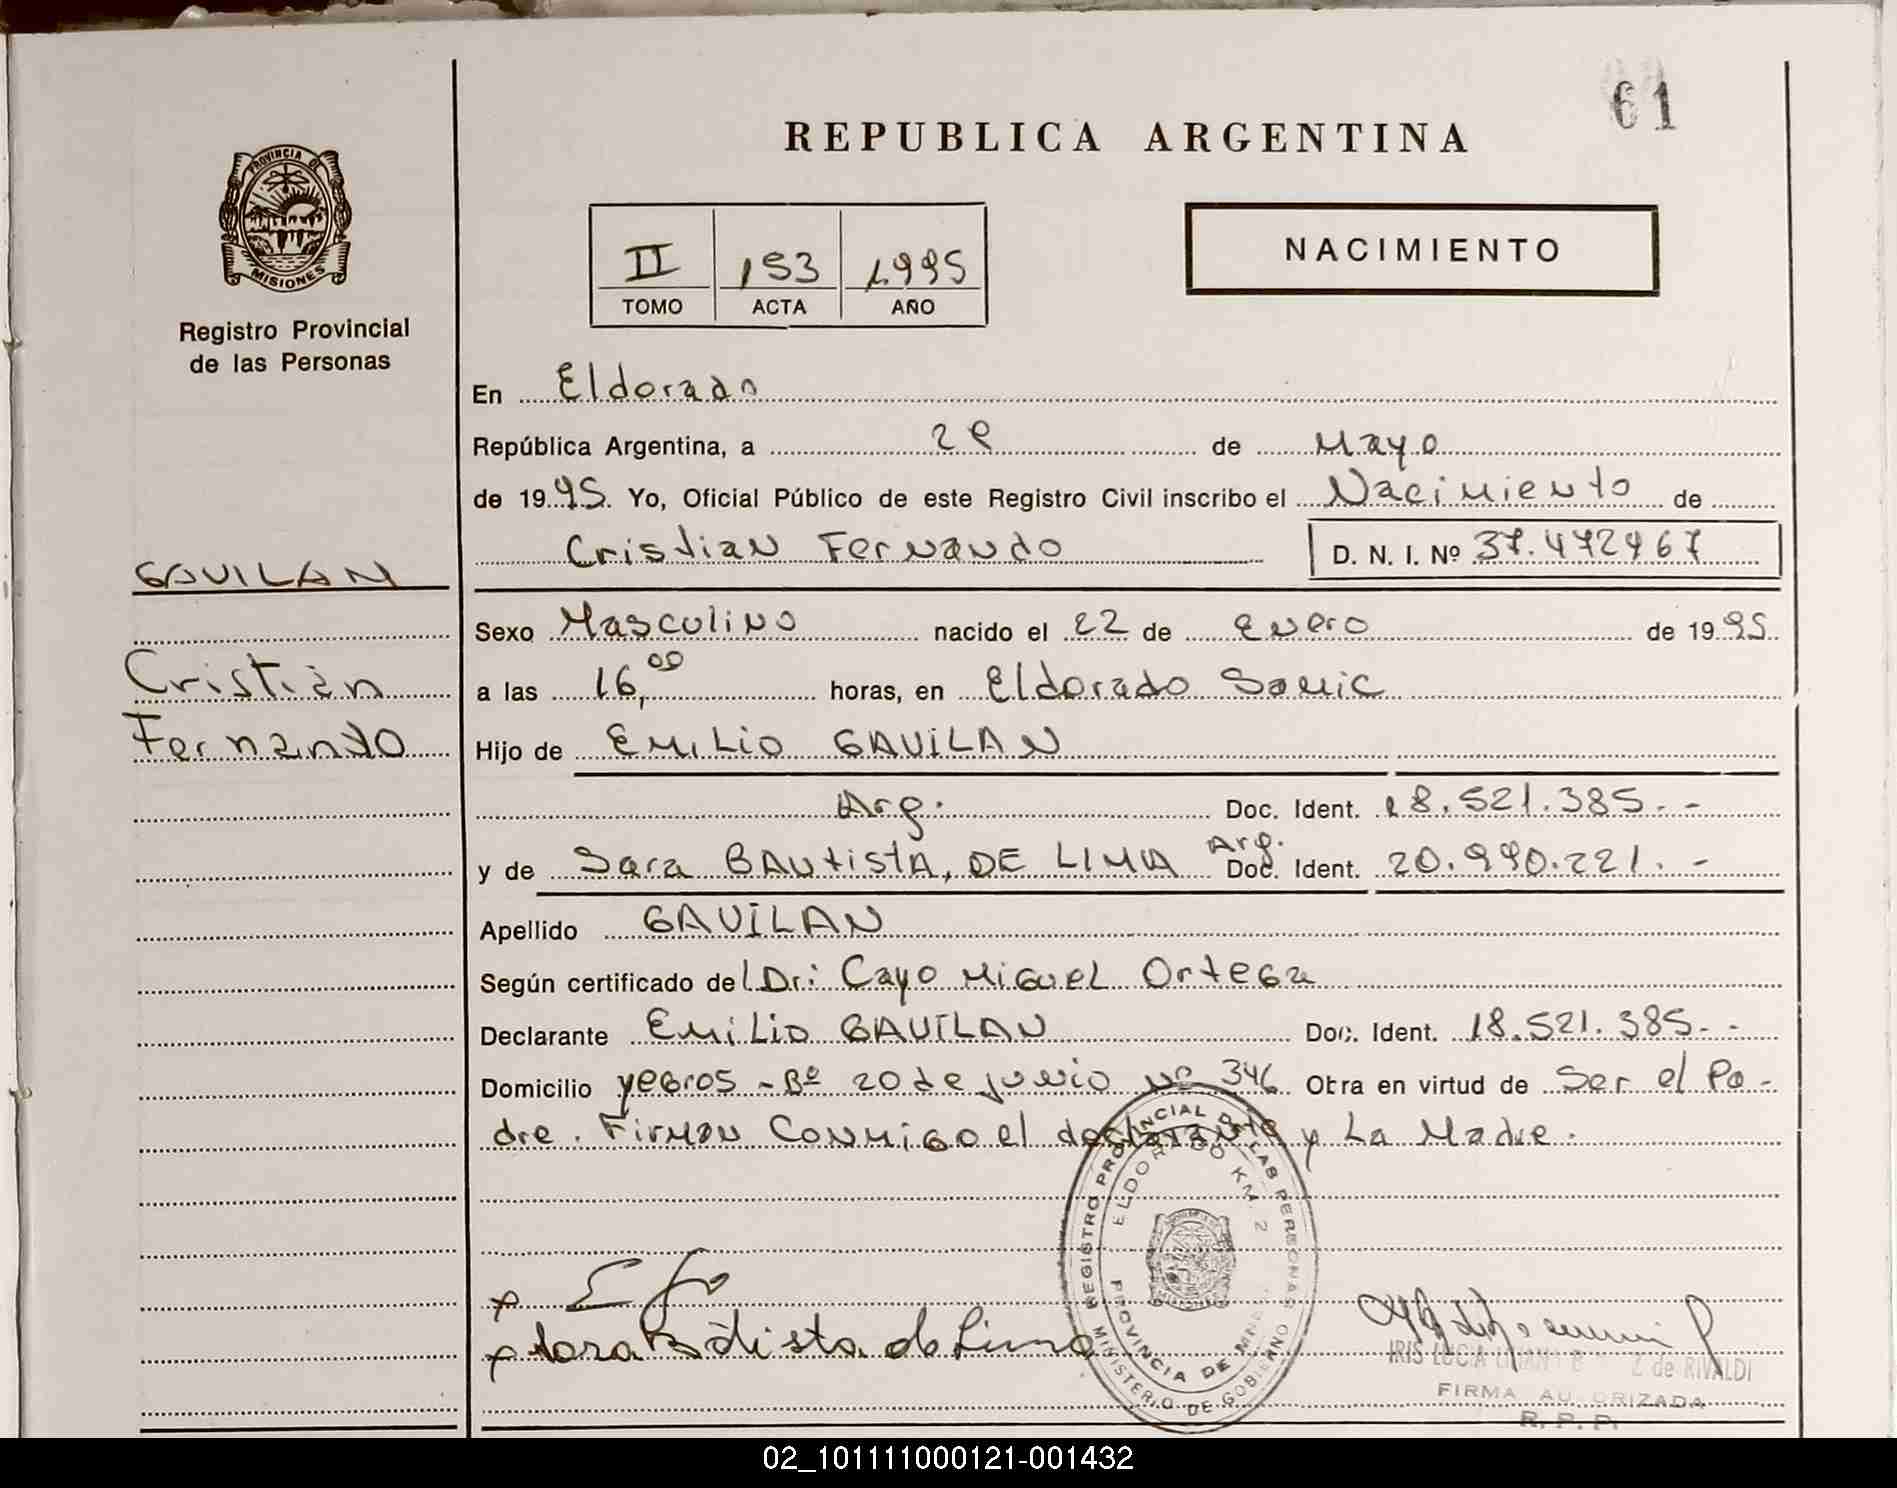 61
REPUBLICA ARGENTINA
PROVINCIA DE
MISIONES
Registro Provincial
de las Personas
II 153 1995
TOMO ACTA AÑO
NACIMIENTO
En Eldorado
República Argentina, a de Mayo
de 1995. Yo, Oficial Público de este Registro Civil inscribo el Nacimiento de
Cristian Fernando D. N. I. Nº 37.472467
GAVILAN
Cristian
Fernando
Sexo Masculino nacido el 22 de enero de 1995
a las 16,00 horas, en Eldorado Samic
Hijo de EMILIO GAVILAN
Arg. Doc. Ident. 18.521.385.-
y de Sara BAUTISTA, DE LIMA Arg. Doc. Ident. 20.990.221.-
Apellido GAVILAN
Según certificado del Dr: Cayo Miguel Ortega
Declarante Emilio GAVILAN Doc. Ident. 18.521.385.-
Domicilio yegros - Bº 20 de junio Nº 346 Obra en virtud de Ser el Pa-
dre. Firman conmigo el declarante y La Madre.
REGISTRO PROVINCIAL DE LAS PERSONAS
ELDORADO KM. 2
PROVINCIA DE
MINISTERIO DE GOBIERNO
x
x Sara Batista de Lima
IRIS LUCIA de RIVALDI
FIRMA AUTORIZADA
R. P. P.
02_101111000121-001432